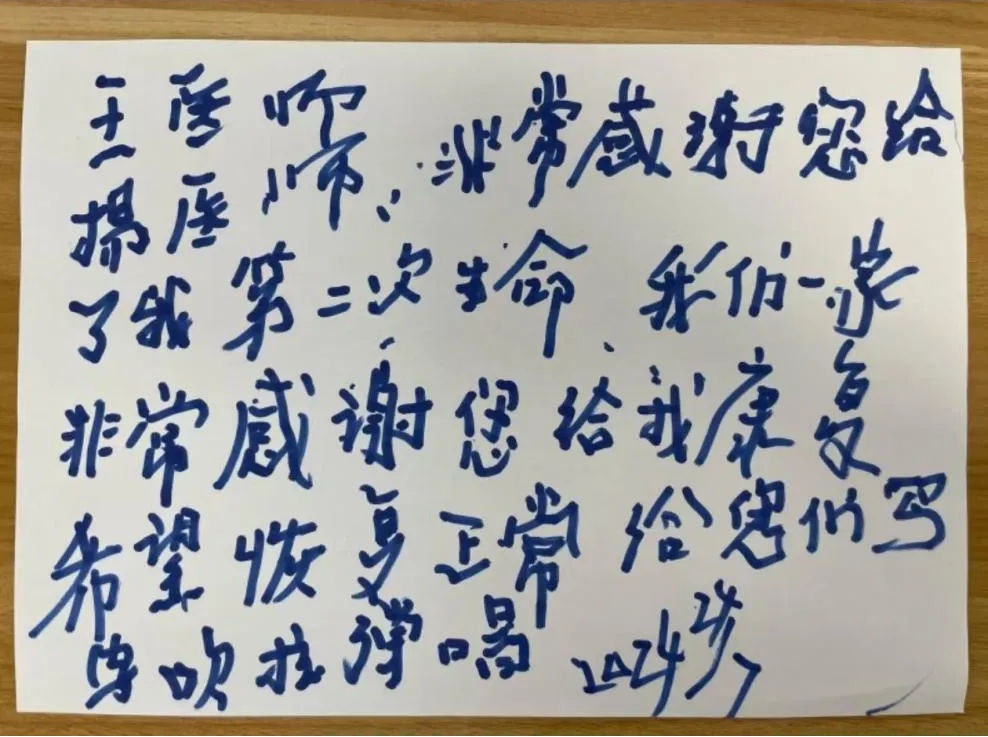 王医师
杨医师，非常感谢您给
了我第二次生命、我们一家
非常感谢您给我康复
希望恢复正常给您们写
字吹拉弹唱 2024